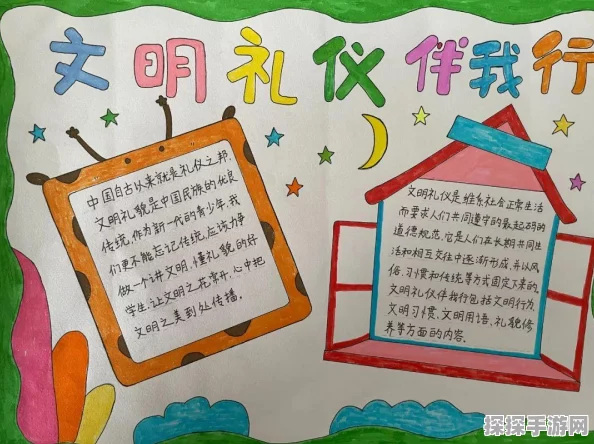 文明礼仪伴我行
中国自古以来就是礼仪之邦,
文明礼貌是中国民族的优良
传统,作为新一代的青少年,我
们更不能忘记传统,应该力争
做一个讲文明,懂礼貌的好
学生,让文明之花常开,心中把
文明之美到处传播.
文明礼仪是维系社会正常生活
而要求人们共同遵守的最起码的
道德规范,它是人们在长期共同生
活和相互交往中逐渐形成,并以风
俗、习惯和传统等方式固定下来的。
文明礼仪伴我行包括文明行为,
文明习惯,文明用语,礼貌修
养等方面的内容.
探探手游网